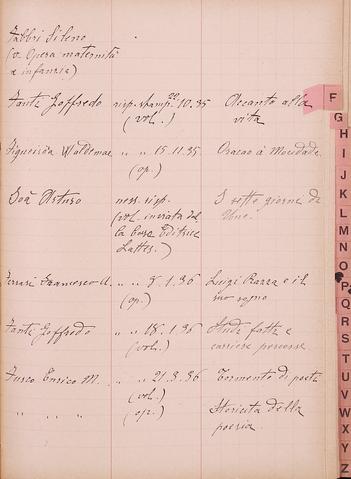 Fabbri Sileno
(v. Opera maternità
e infanzia)
Fanti Goffredo risp. stamp. 22.10.35 Accanto alla
(vol.) vita
Figueirôa Waldemar " " 15.11.35 Oracao á Mocidade
(op.)
Foà Arturo ness. risp. I sette giorni di
(vol. inviato dal
la Casa Editrice
Lattes.)
Ferrari Francesco A. " " 8.1.36 Luigi Razza e il
(op.) suo sogno
Fanti Goffredo " " 18.1.36 Studi fatti e
(vol.) carriera percorsa
Fusco Enrico M. " " 21.3.36 Tormento di poeta
(vol.)
" " " (op.) Storicità della
poesia.
F
G
H
I
J
K
L
M
N
O
P
Q
R
S
T
U
V
W
X
Y
Z